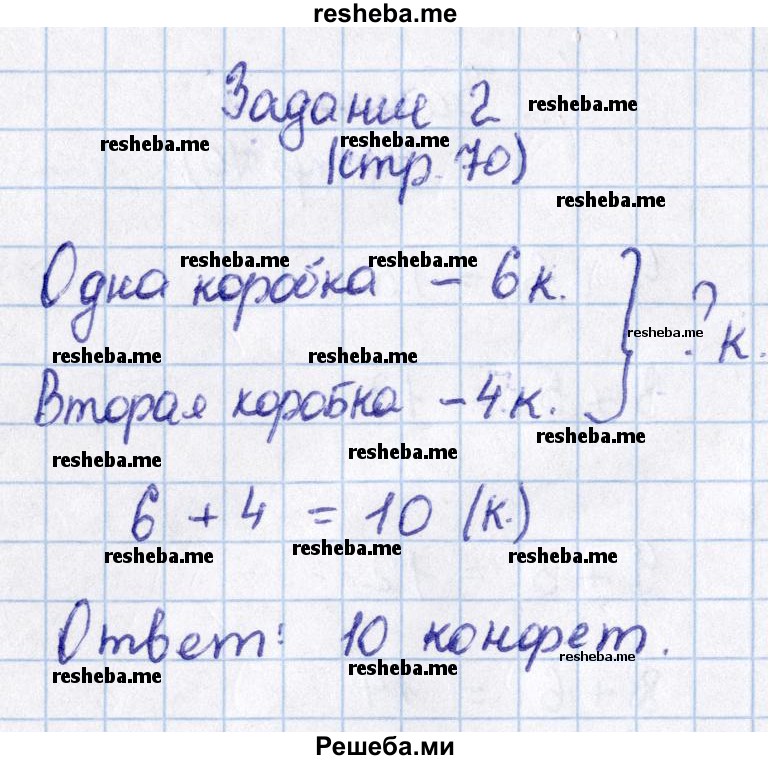 resheba.me
Задание 2 resheba.me
resheba.me resheba.me
(стр. 70)
resheba.me
resheba.me resheba.me
Одна коробка - 6 к. } ? к.
resheba.me
resheba.me resheba.me
Вторая коробка - 4 к.
resheba.me
resheba.me resheba.me
6 + 4 = 10 (к.)
resheba.me resheba.me resheba.me
Ответ: 10 конфет.
resheba.me
resheba.me resheba.me
Решеба.ми